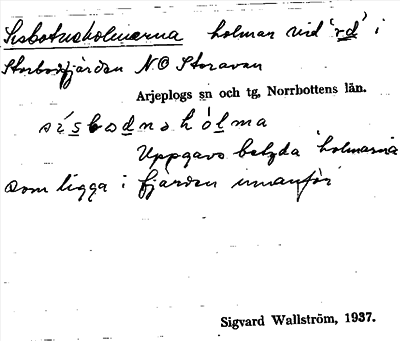 Sisbotnsholmarna holmar vid 'rd' i
Storbodfjärden N.O Storavan
Arjeplogs sn och tg, Norrbottens län.
sísbodnshólma
Uppgavs betyda holmarna
som ligga i fjärden innanför
Sigvard Wallström, 1937.